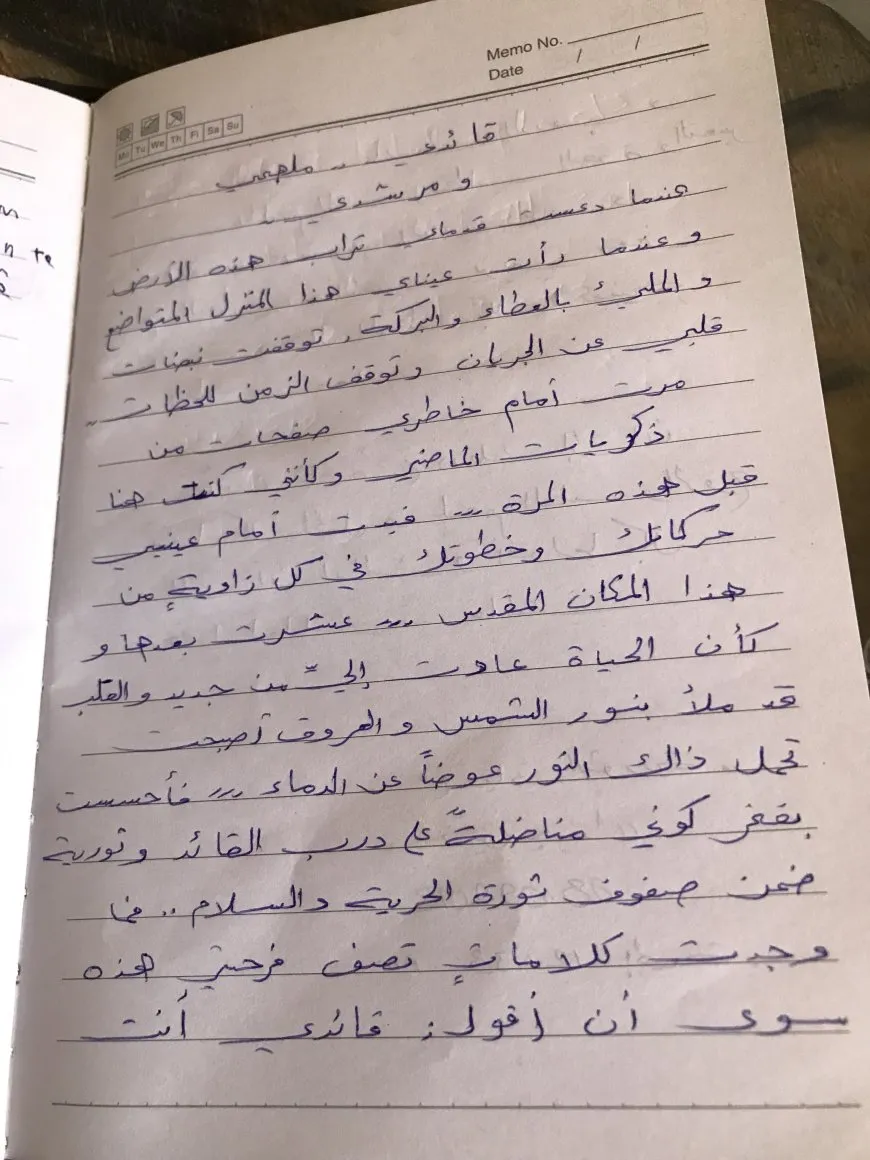 Memo No.
Date / /
Mo Tu We Th Fi Sa Su
قائدي .. ملهمي
و مرشدي ..
عندما دعست قدماي تراب هذه الأرض
و عندما رأت عيناي هذا المنزل المتواضع
و المليئ بالعطاء والبركة، توقفت نبضات
قلبي عن الجريان وتوقف الزمن للحظات ..
مرت أمام خاطري صفحات من
ذكريات الماضي وكأنني كنت هنا
قبل هذه المرة ... فبدت أمام عينيي
حركاتك وخطوتك في كل زاويةٍ من
هذا المكان المقدس ... عشرت بعدها و
كأن الحياة عادت إليّ من جديد والقلب
قد ملأ بنور الشمس و العروق أصبحت
تحمل ذاك النور عوضاً عن الدماء ... فأحسست
بفخر كوني مناضلةً على درب القائد وثورية
ضمن صفوف ثورة الحرية والسلام .. فما
وجدت كلاماتٍ تصف فرحتي هذه
سوى أن أقول: قائدي أنت
n te